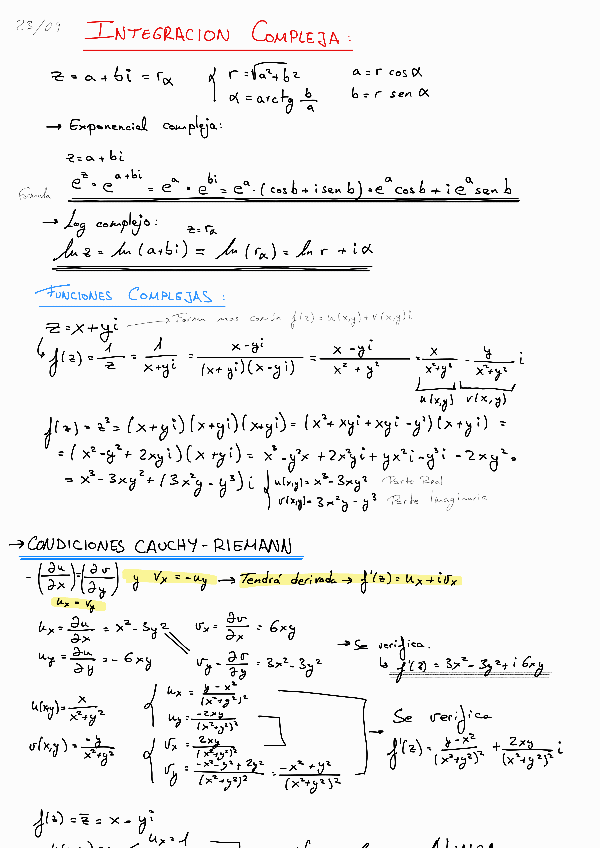 23/09
INTEGRACION COMPLEJA:
z = a + bi = r_α { r = √(a²+b²) a = r cos α
α = arctg b/a b = r sen α
→ Exponencial compleja:
z = a + bi
e^z = e^(a+bi) = e^a · e^(bi) = e^a · (cos b + i sen b) = e^a cos b + i e^a sen b
→ Log complejo: z = r_α
ln z = ln (a+bi) = ln (r_α) = ln r + iα
FUNCIONES COMPLEJAS:
z = x + yi → Forma mas común f(z) = u(x,y) + v(x,y)i
f(z) = 1/z = 1/(x+yi) = (x-yi)/((x+yi)(x-yi)) = (x-yi)/(x²+y²) = x/(x²+y²) - y/(x²+y²) i
u(x,y) v(x,y)
f(z) = z³ = (x+yi)(x+yi)(x+yi) = (x²+xyi+xyi-y²)(x+yi) =
= (x²-y²+2xyi)(x+yi) = x³-y²x+2x²yi+yx²i-y³i-2xy² =
= x³-3xy²+(3x²y-y³)i { u(x,y) = x³-3xy² Parte Real
v(x,y) = 3x²y-y³ Parte Imaginaria
→ CONDICIONES CAUCHY-RIEMANN
- (∂u/∂x) = (∂v/∂y) y Vx = -uy → Tendrá derivada → f'(z) = ux + ivx
ux = vy
ux = ∂u/∂x = x²-3y² vx = ∂v/∂x = 6xy
→ Se verifica.
uy = ∂u/∂y = -6xy vy = ∂v/∂y = 3x²-3y²
↳ f'(z) = 3x²-3y²+i 6xy
u(x,y) = x/(x²+y²) { ux = (y-x²)/(x²+y²)²
uy = -2xy/(x²+y²)²
v(x,y) = -y/(x²+y²) { vx = 2xy/(x²+y²)²
vy = (-x²-y²+2y²)/(x²+y²)² = (-x²+y²)/(x²+y²)²
→ Se verifica
f'(z) = (y-x²)/(x²+y²)² + 2xy/(x²+y²)² i
f(z) = z̄ = x - yi
ux = 1